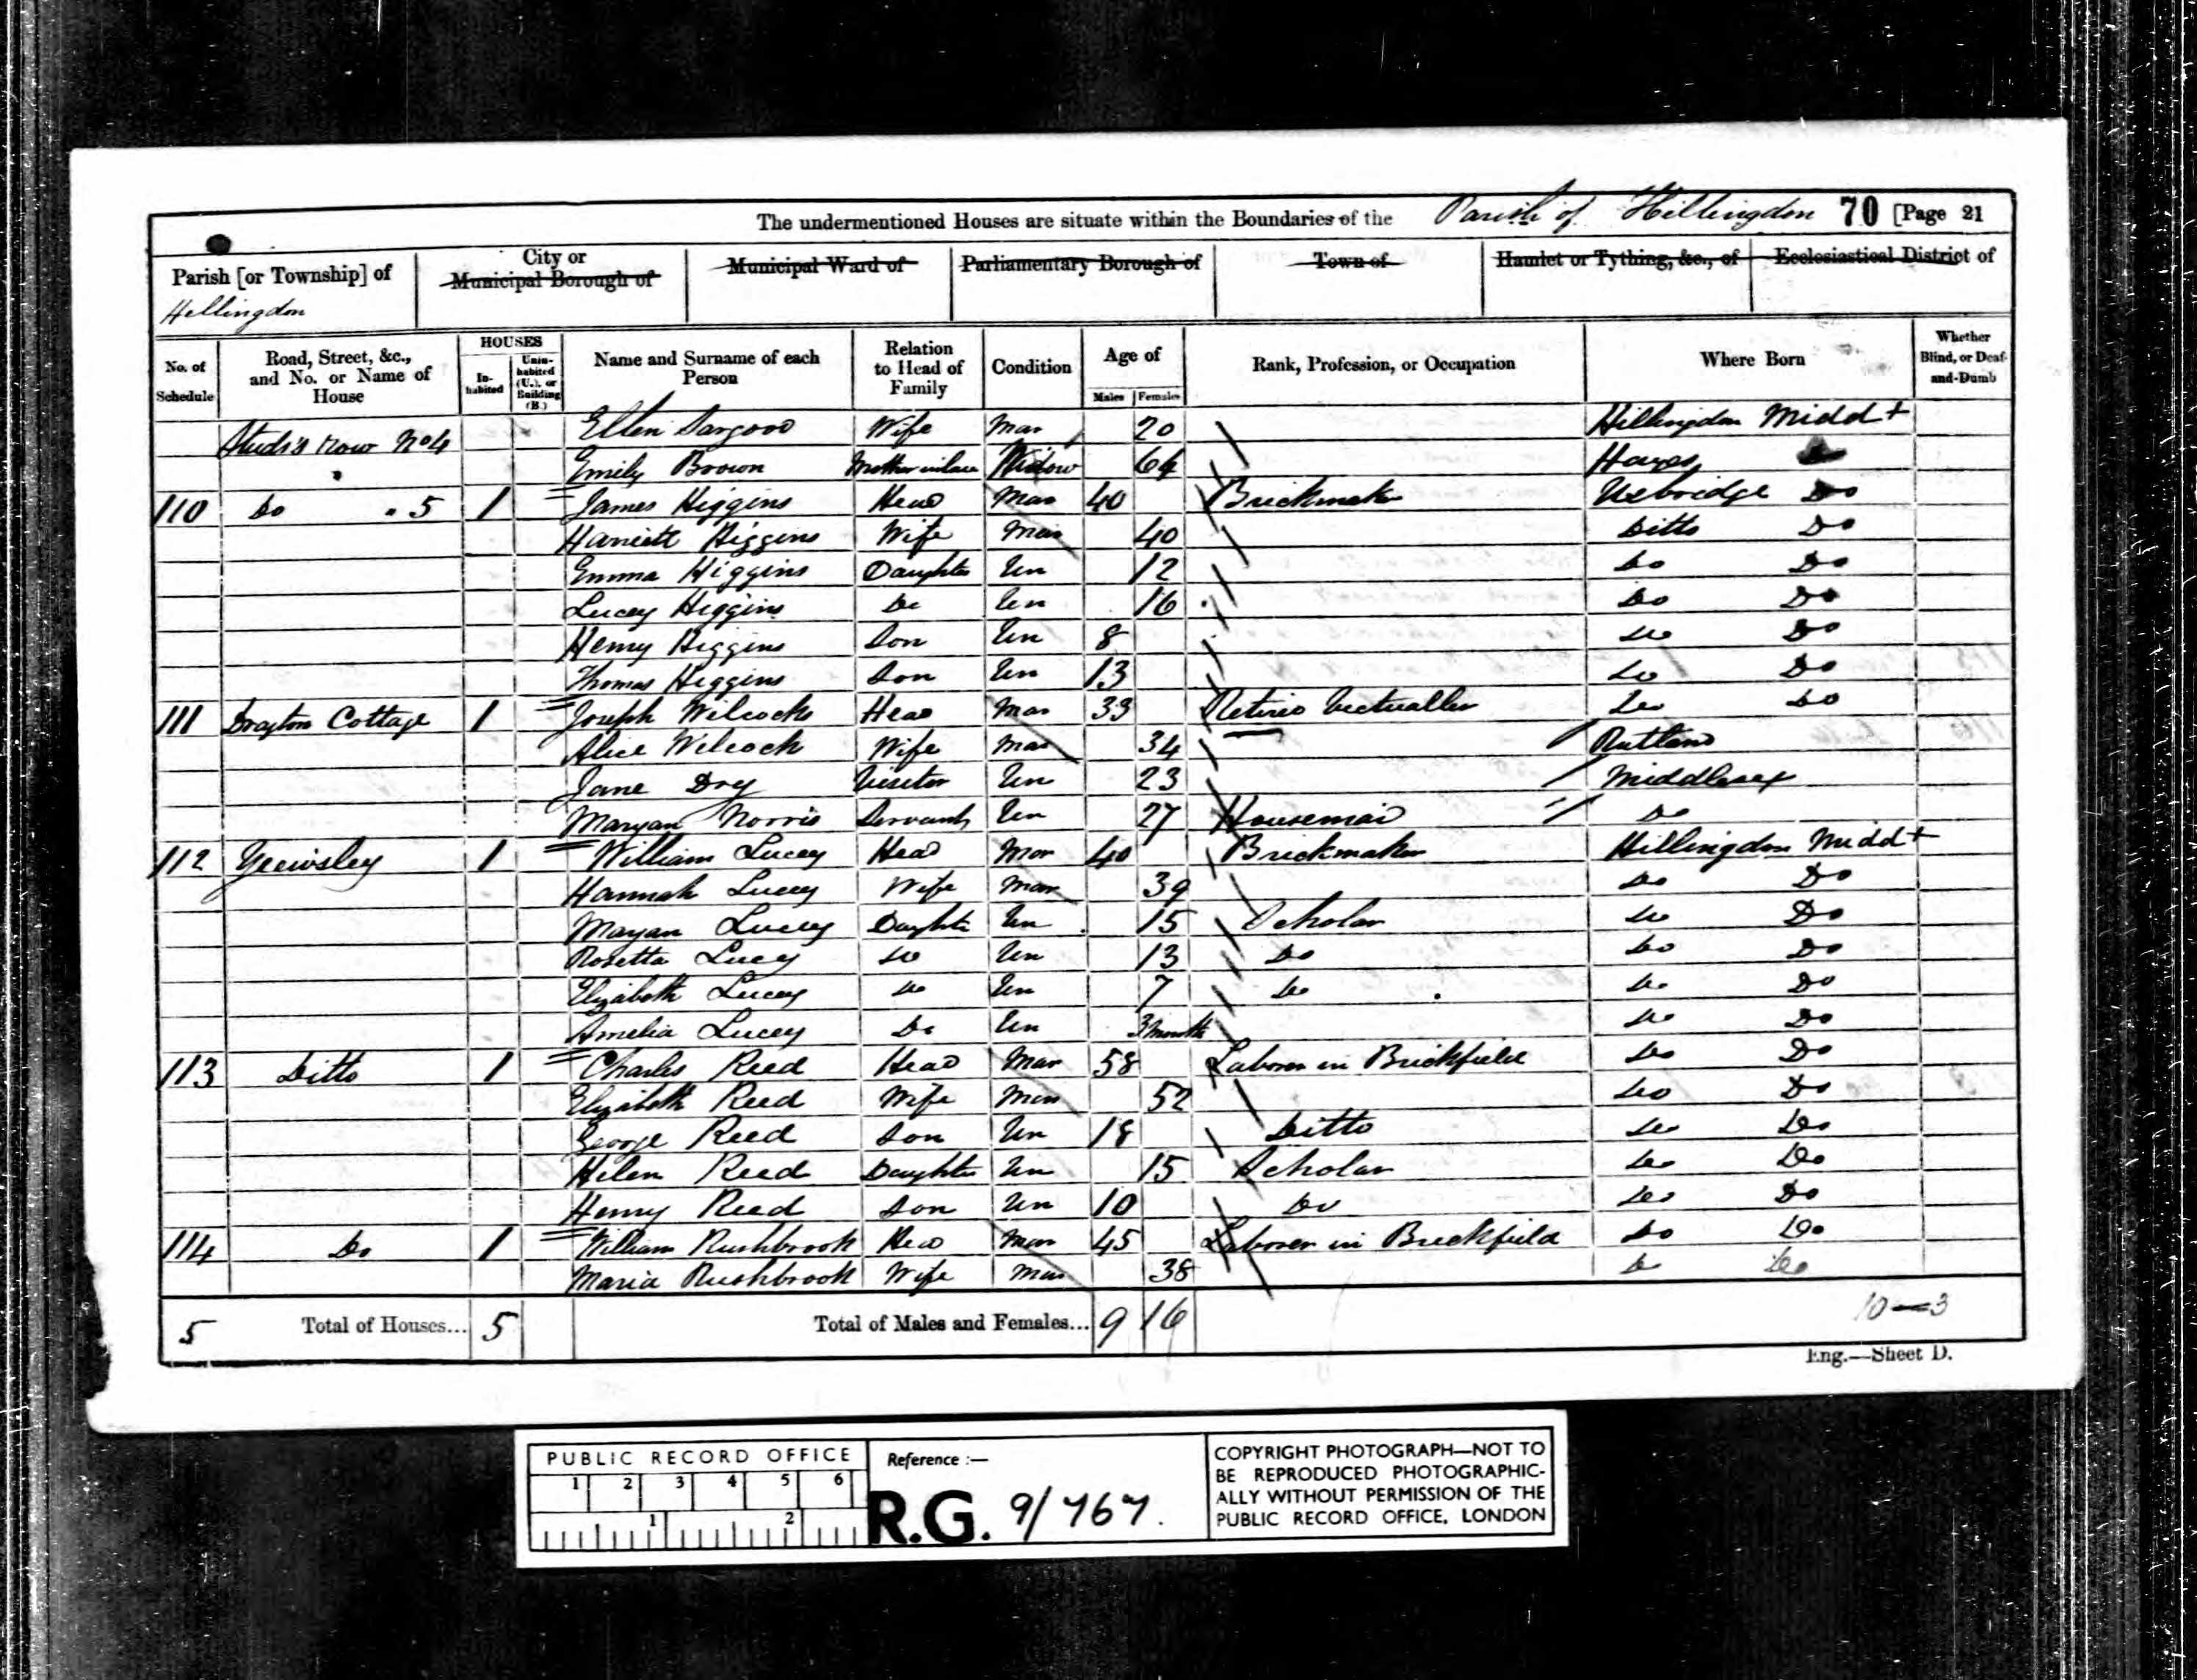 The undermentioned Houses are situate within the Boundaries of the Parish of Hillingdon 70 [Page 21
Parish [or Township] of City or Municipal Borough of Municipal Ward of Parliamentary Borough of Town of Hamlet or Tything, &c., of Ecclesiastical District of
Hillingdon
No. of Schedule Road, Street, &c., and No. or Name of House HOUSES Inhabited Uninhabited (U.), or Building (B.) Name and Surname of each Person Relation to Head of Family Condition Age of Males Females Rank, Profession, or Occupation Where Born Whether Blind, or Deaf-and-Dumb
row No 4 Ellen Sargood Wife Mar 20 Hillingdon Midd x
Emily Brown Mother in law Widow 64 Hayes
110 Do " 5 1 James Higgins Head Mar 40 Brickmaker Uxbridge Do
Harriett Higgins Wife Mar 40 Ditto Do
Emma Higgins Daughter Un 12 Do Do
Lucey Higgins Do Un 16 Do Do
Henry Higgins Son Un 8 Do Do
Thomas Higgins Son Un 13 Do Do
111 Drayton Cottage 1 Joseph Wilcocks Head Mar 33 Retired Victualler Do Do
Alice Wilcock Wife Mar 34 Rutland
Jane Dry Visitor Un 23 Middlesex
Maryan Norris Servant Un 27 Housemaid Do
112 Yeewsley 1 William Lucey Head Mar 40 Brickmaker Hillingdon Midd x
Hannah Lucey Wife Mar 39 Do Do
Mayan Lucey Daughter Un 15 Scholar Do Do
Rosetta Lucey Do Un 13 Do Do Do
Elizabeth Lucey Do Un 7 Do Do Do
Amelia Lucey Do Un 3 Months Do Do
113 Ditto 1 Charles Reed Head Mar 58 Laborer in Brickfield Do Do
Elizabeth Reed Wife Mar 52 Do Do
George Reed Son Un 18 Ditto Do Do
Helen Reed Daughter Un 15 Scholar Do Do
Henry Reed Son Un 10 Do Do Do
114 Do 1 William Rushbrook Head Mar 45 Laborer in Brickfield Do Do
Maria Rushbrook Wife Mar 38 Do Do
5 Total of Houses... 5 Total of Males and Females... 9 16 10—3
Eng.—Sheet D.
PUBLIC RECORD OFFICE
1 2 3 4 5 6
1 2
Reference :—
R.G. 9/767.
COPYRIGHT PHOTOGRAPH—NOT TO
BE REPRODUCED PHOTOGRAPHIC-
ALLY WITHOUT PERMISSION OF THE
PUBLIC RECORD OFFICE, LONDON